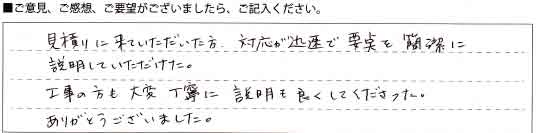 ■ご意見、ご感想、ご要望がございましたら、ご記入ください。
見積りに来ていただいた方、対応が迅速で要点を簡潔に
説明していただけた。
工事の方も大変丁寧に説明も良くしてくださった。
ありがとうございました。